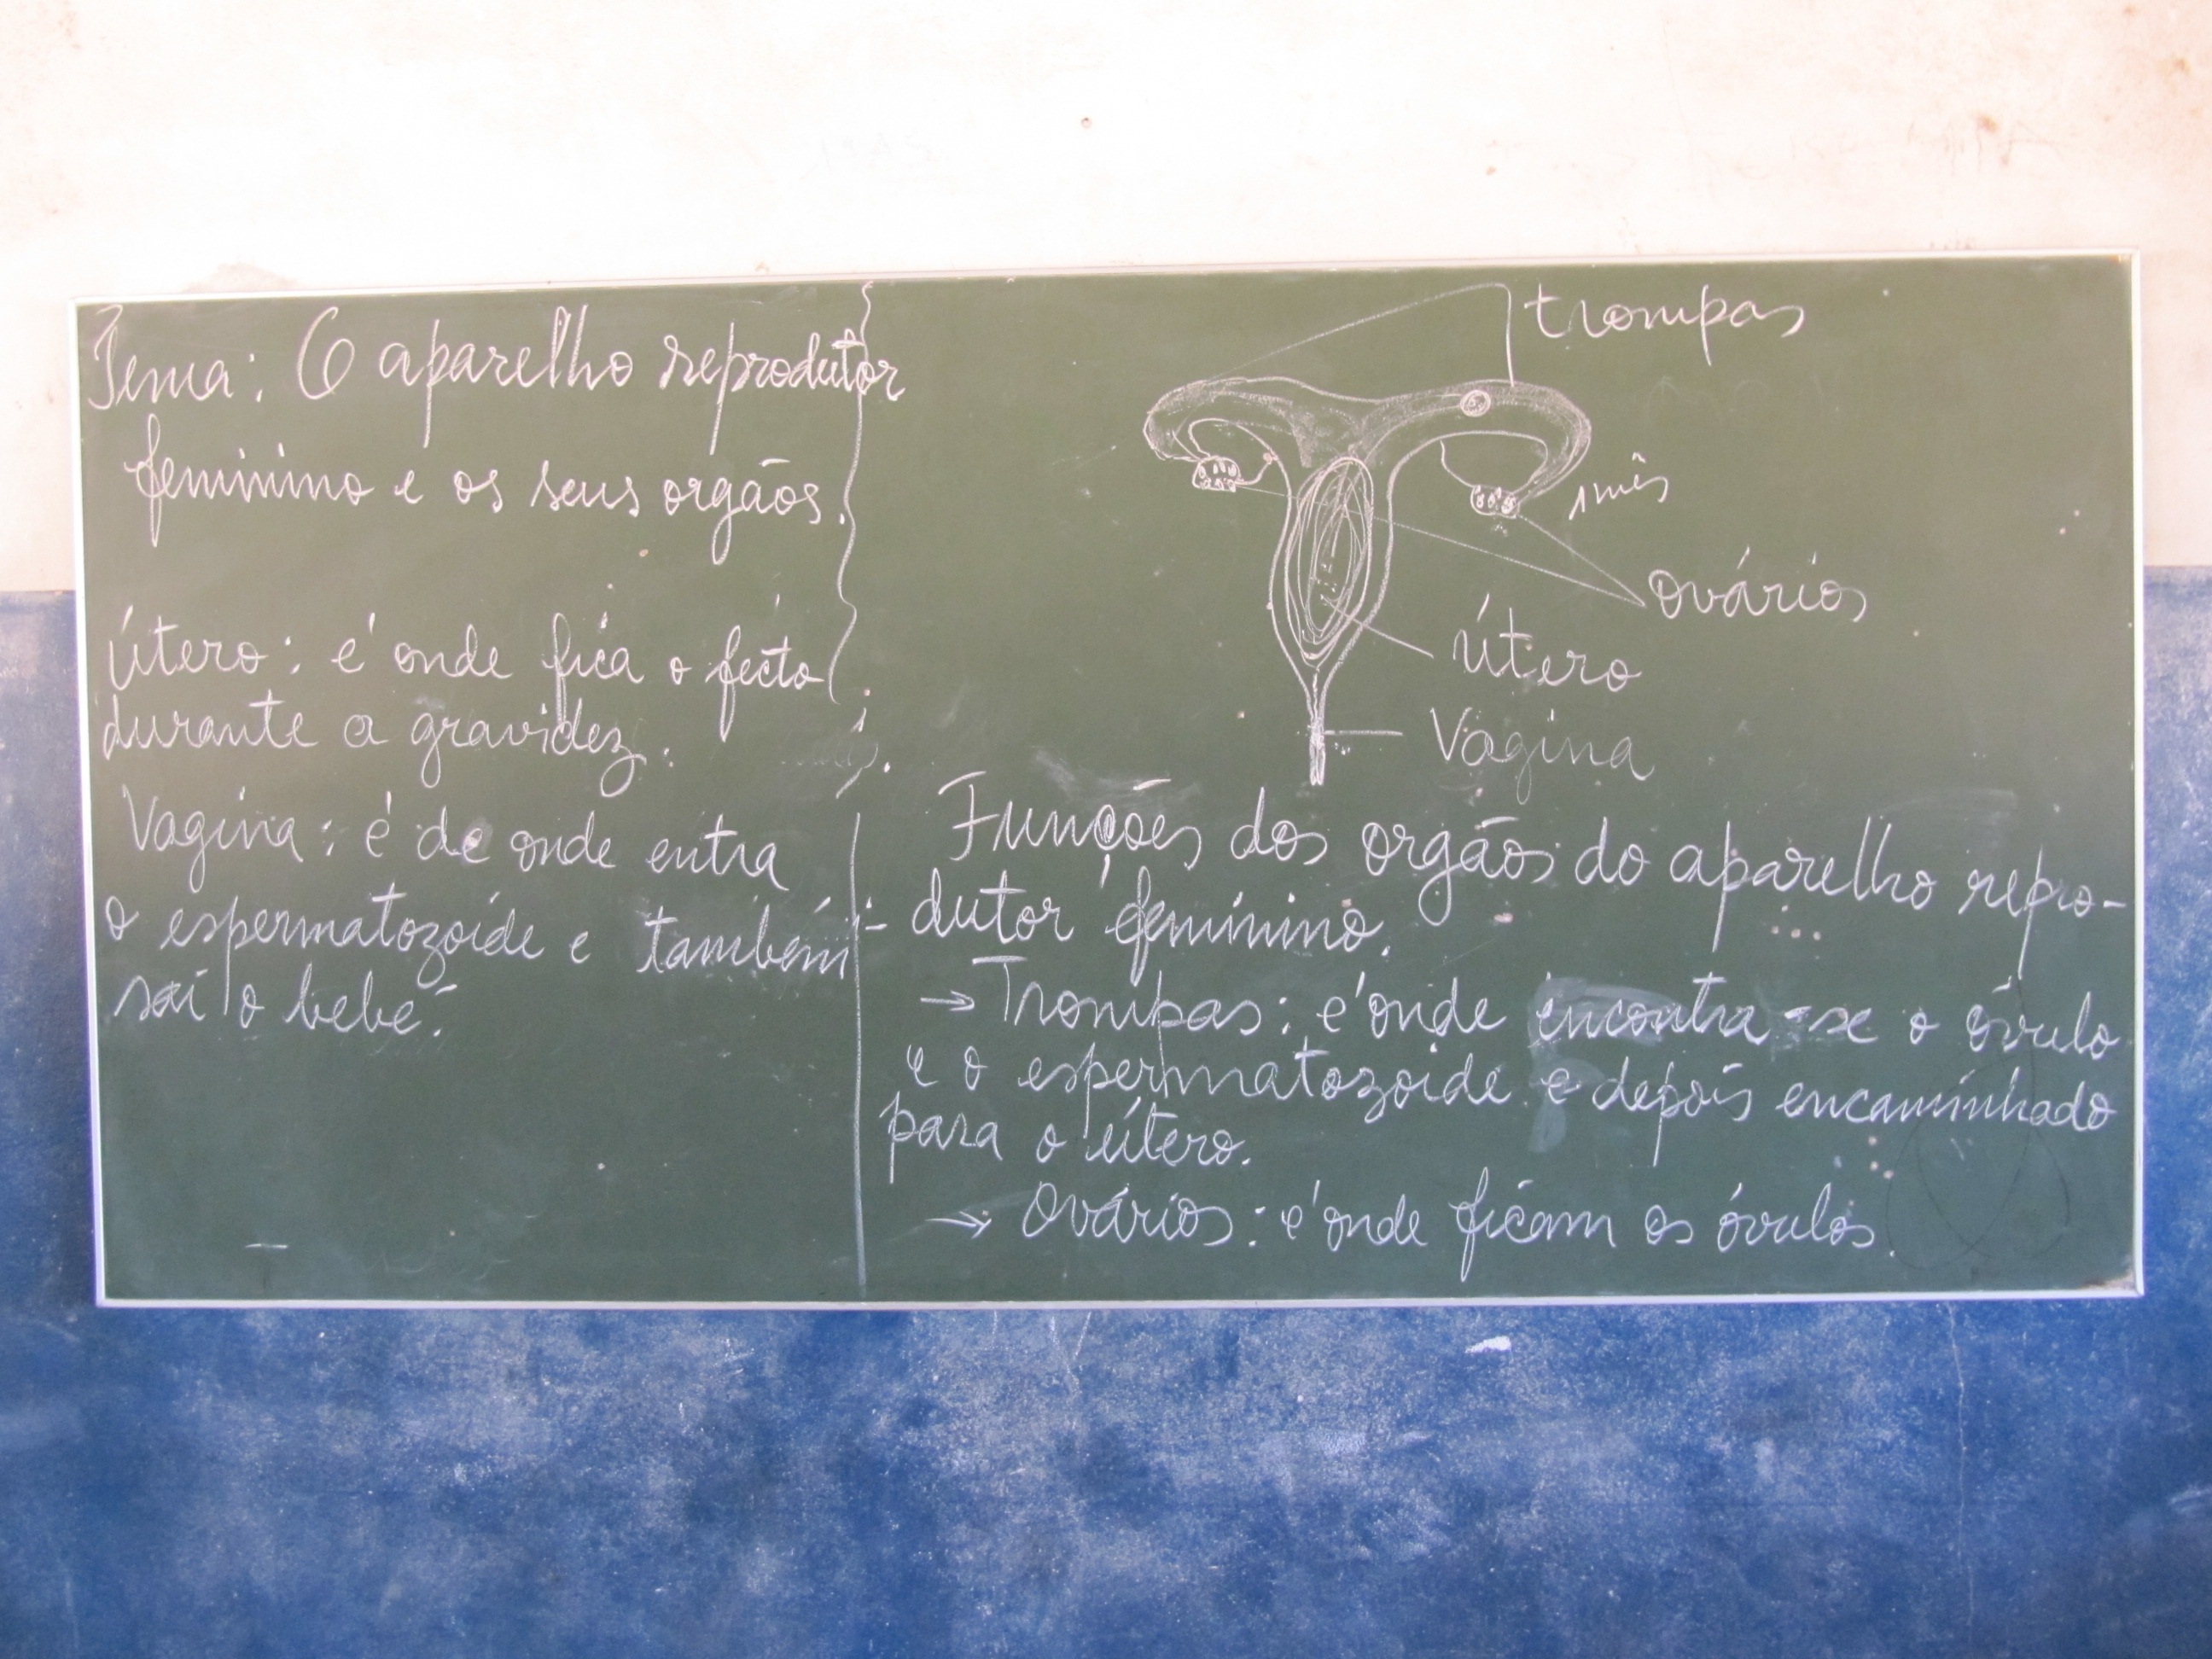 Tema: O aparelho reprodutor
feminino e os seus orgãos.
Útero: é onde fica o fecto
durante a gravidez.
Vagina: é de onde entra
o espermatozoide e também
sai o bebé.
trompas
1 mês
ovários
Útero
Vagina
Funções dos orgãos do aparelho repro-
dutor feminino.
→ Trompas: é onde encontra-se o óvulo
e o espermatozoide e depois encaminhado
para o útero.
→ Ovários: é onde ficam os óvulos.